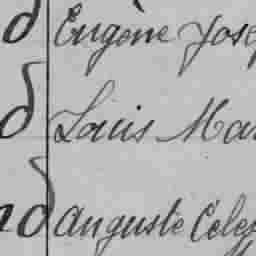 d Eugène Jose
d Louis Mar
nd Auguste Céles